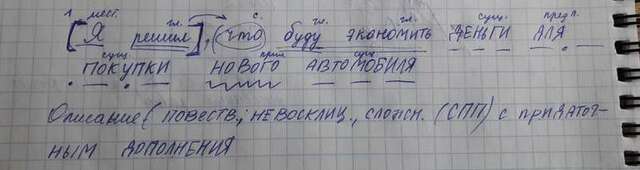 1 мест. гл. с. гл. гл. сущ. предл.
[Я решил], (что буду экономить деньги для
сущ. прил. сущ.
покупки нового автомобиля
Описание (повеств., невосклиц., сложн. (СПП) с придаточ-
ным дополнения